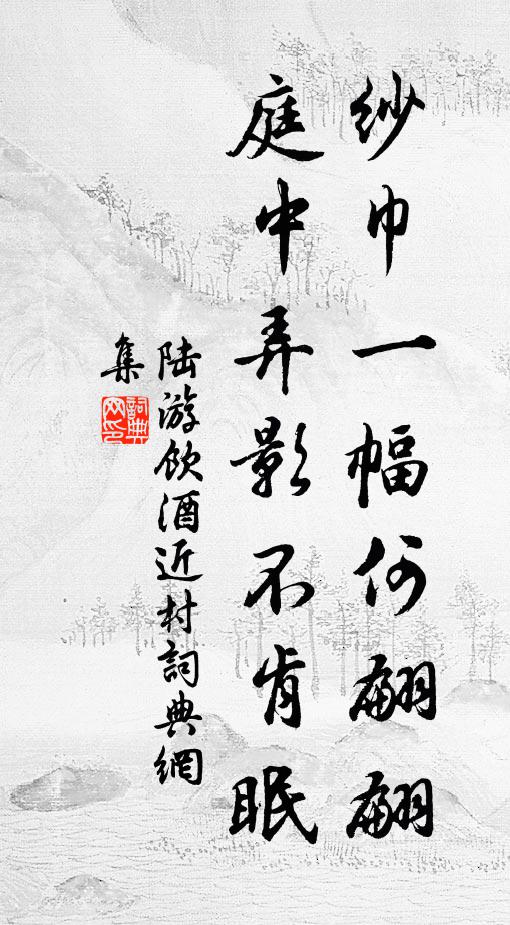 紗巾一幅何翩翩
庭中弄影不肯眠
陆游饮酒近村詞典網
集
詞典
网印